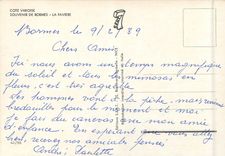 COTE VAROISE
SOUVENIR DE BORMES - LA FAVIERE
Bormes le 9/2/89
Chers Amis
Ici nous avons un temps magnifique
du soleil et tous les mimosas en
fleurs, c'est très agréable
les hommes vont à la pêche, mais reviennent
bredouilles pour le moment et moi
je fais du canevas avec mon amie
d'enfance. En espérant que vous allez
bien recevez nos amicales pensées